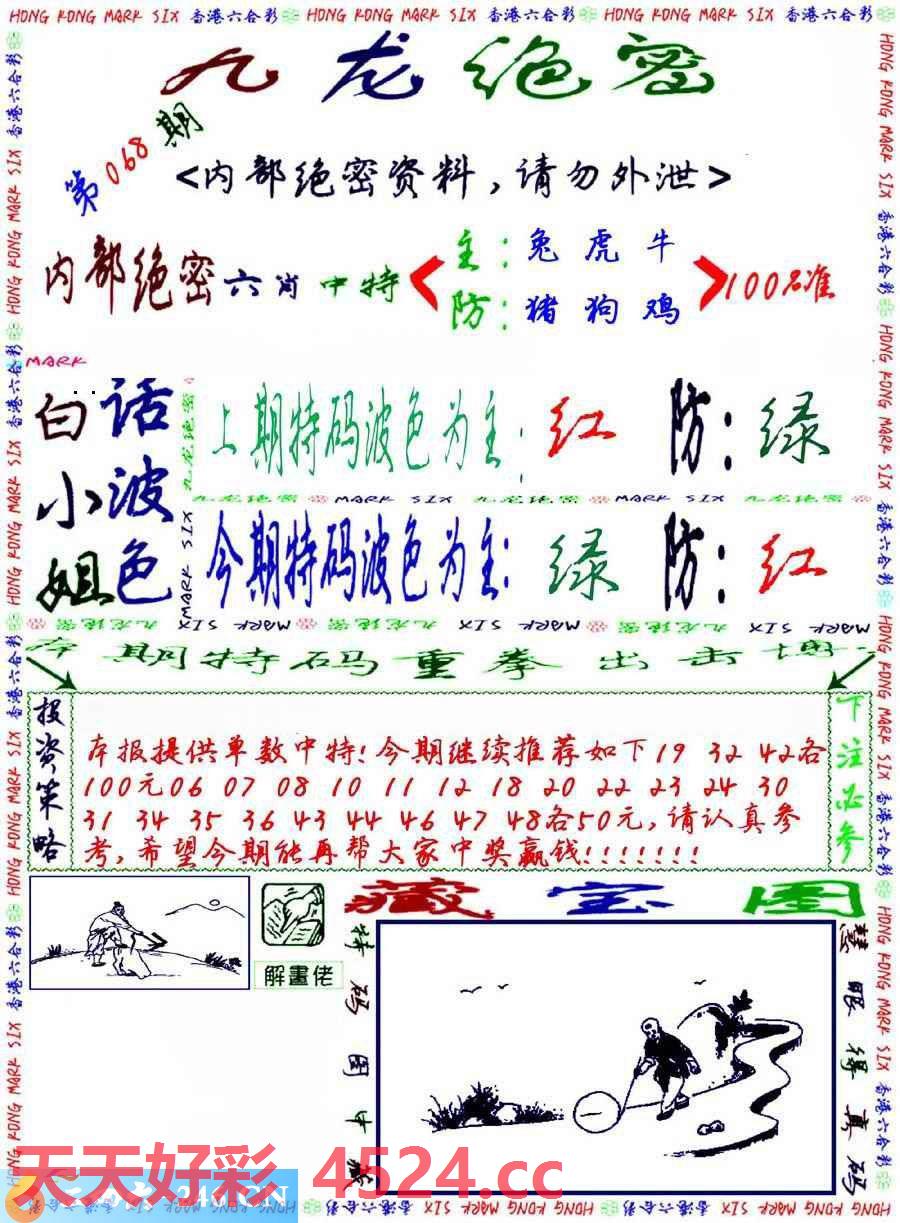 HONG KONG MARK SIX 香港六合彩 HONG KONG MARK SIX 香港六合彩 HONG KONG MARK SIX 香港六合彩
九龙绝密
第068期
<内部绝密资料,请勿外泄>
内部绝密六肖中特
主:兔虎牛
防:猪狗鸡
100%准
MARK
白小姐
话波色
九龙绝密
MARK SIX
上期特码波色为主:红 防:绿
九龙绝密 MARK SIX 九龙绝密 MARK SIX 九龙绝密
今期特码波色为主:绿 防:红
九龙绝密 MARK SIX 九龙绝密 MARK SIX 九龙绝密 MARK SIX
本期特码重拳出击
投资策略
本报提供单数中特!今期继续推荐如下19 32 42各
100元06 07 08 10 11 12 18 20 22 23 24 30
31 34 35 36 43 44 46 47 48各50元,请认真参
考,希望今期能再帮大家中奖赢钱!!!!!!!
下注必参
解畫佬
藏宝图
特码图中
慧眼得真码
天天好彩 4524.cc
246.CN